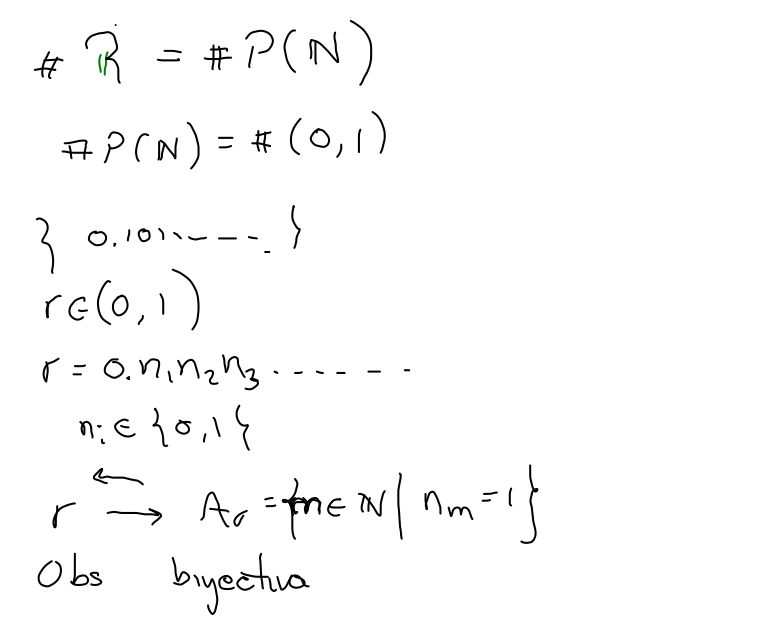 # ℝ = # P(ℕ)
# P(ℕ) = # (0,1)
{ 0.101.------ }
r ∈ (0,1)
r = 0.n₁n₂n₃ ------
nᵢ ∈ {0,1}
r ⟶ Aᵣ = {m ∈ ℕ | nₘ = 1}
Obs biyectiva